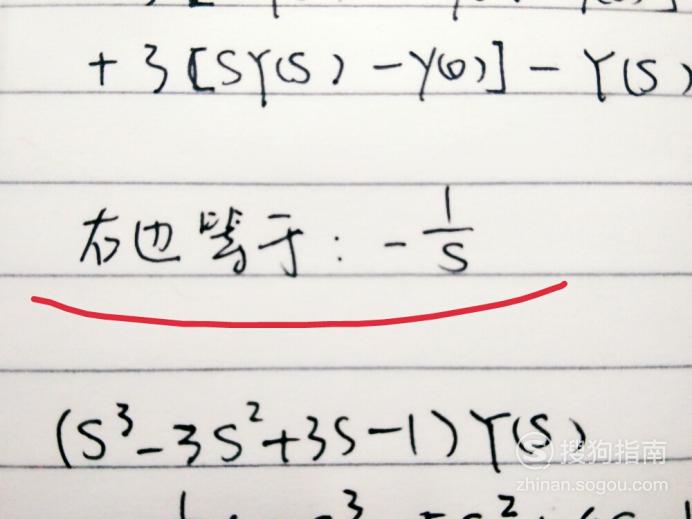 + 3 [SY(S) - Y(0)] - Y(S)
右边等于: - 1/S
(S³ - 3S² + 3S - 1) Y(S)
搜狗指南
zhinan.sogou.com